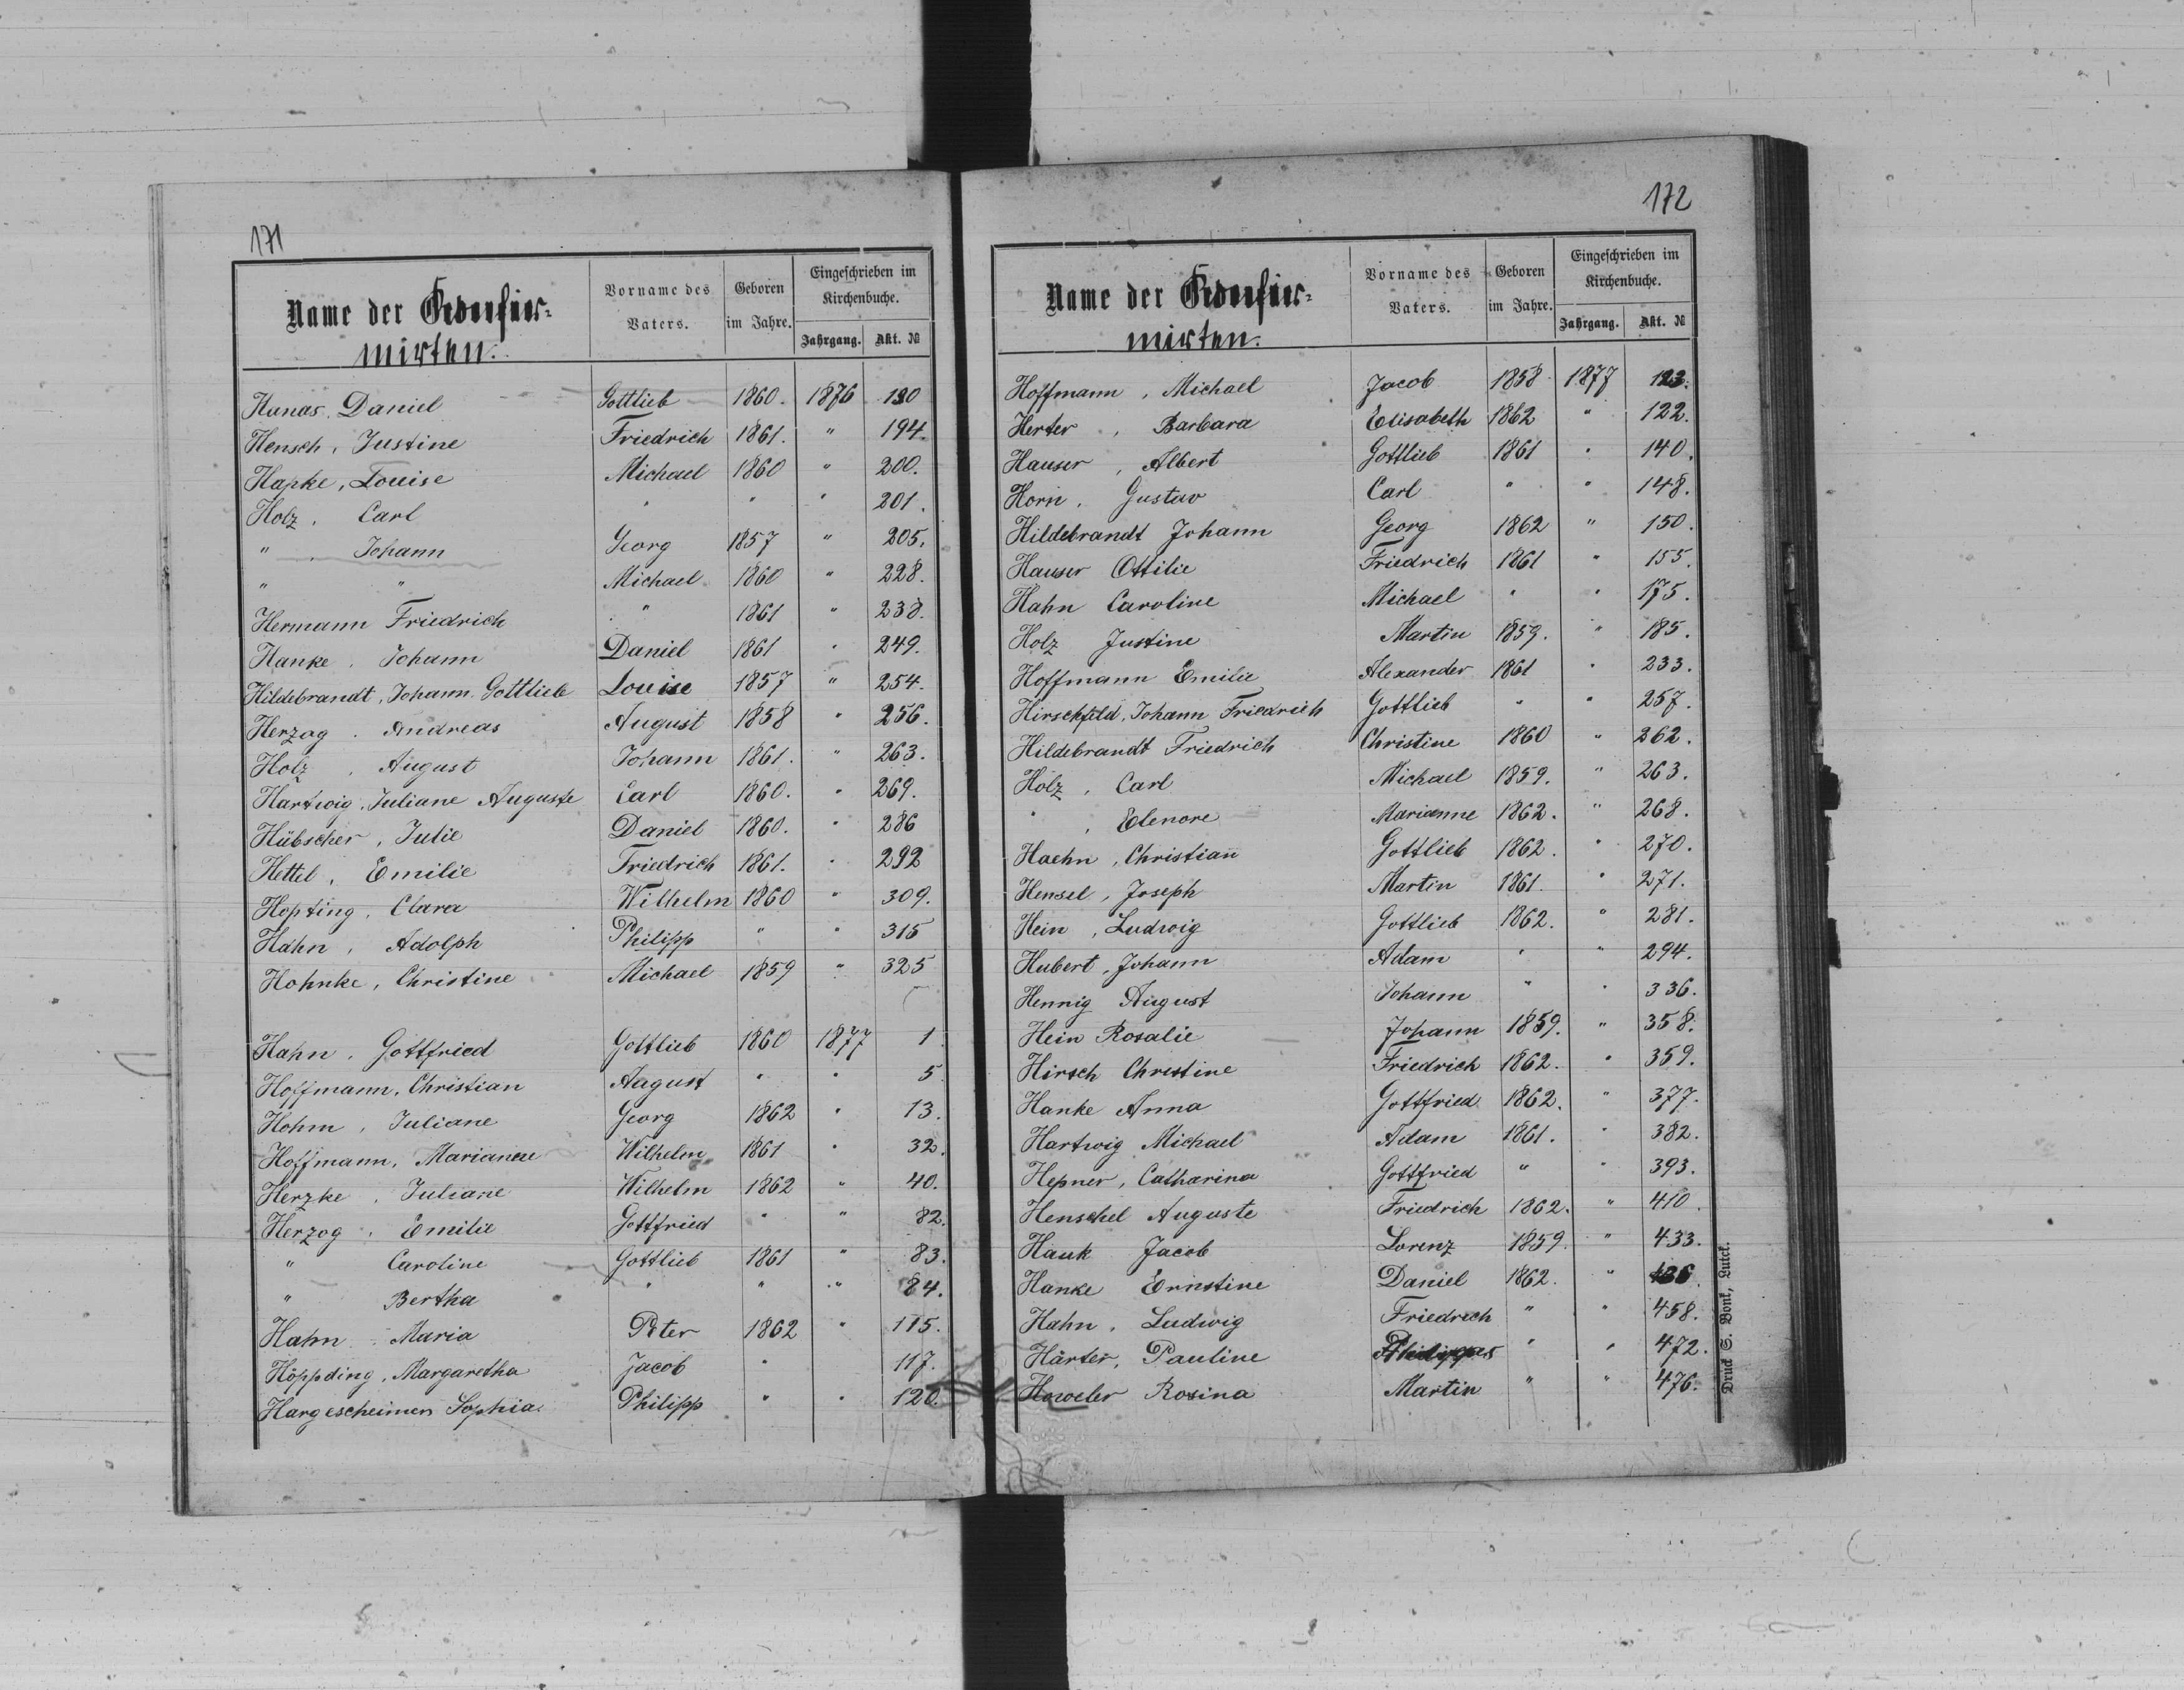 171
Name der Confir=
mirten.
Vorname des
Vaters.
Geboren
im Jahre.
Eingeschrieben im
Kirchenbuche.
Jahrgang. Akt. №
Hunas. Daniel Gottlieb 1860. 1876 190
Hensch, Justine Friedrich 1861. " 194.
Hapke, Louise Michael 1860 " 200.
Holz, Carl " " " 201.
" , Johann Georg 1857 " 205.
" " Michael 1860 " 228.
Hermann Friedrich " 1861 " 238.
Hanke, Johann Daniel 1861 " 249.
Hildebrandt, Johann Gottlieb Louise 1857 " 254.
Herzog. Andreas August 1858 " 256.
Holz, August Johann 1861. " 263.
Hartwig, Juliane Auguste Carl 1860. " 269.
Hübscher, Julie Daniel 1860. " 286
Hettel, Emilie Friedrich 1861. " 292
Hopting, Clara Wilhelm 1860 " 309.
Hahn, Adolph Philipp " " 315
Hohnke, Christine Michael 1859 " 325
Hahn, Gottfried Gottlieb 1860 1877 1
Hoffmann, Christian August " " 5
Hohm, Juliane Georg 1862 " 13.
Hoffmann, Marianne Wilhelm 1861 " 32.
Herzke, Juliane Wilhelm 1862 " 40.
Herzog, Emilie Gottfried " " 82.
" Caroline Gottlieb 1861 " 83.
" Bertha " " " 84.
Hahn Maria Peter 1862 " 115.
Höppding, Margaretha Jacob " 117.
Hargescheimer Sophia Philipp " " 120.
172
Name der Confir=
mirten.
Vorname des
Vaters.
Geboren
im Jahre.
Eingeschrieben im
Kirchenbuche.
Jahrgang. Akt. №
Hoffmann, Michael Jacob 1858 1877 123.
Herter, Barbara Elisabeth 1862 " 122.
Hauser, Albert Gottlieb 1861 " 140.
Horn, Gustav Carl " " 148.
Hildebrandt Johann Georg 1862 " 150.
Hauser Ottilie Friedrich 1861 " 155.
Hahn Caroline Michael " " 175.
Holz Justine Martin 1859. " 185.
Hoffmann Emilie Alexander 1861 " 233.
Hirschfeld, Johann Friedrich Gottlieb " " 257.
Hildebrandt Friedrich Christine 1860 " 262.
Holz, Carl Michael 1859. " 263.
" , Elenore Marianne 1862. " 268.
Haehn, Christian Gottlieb 1862. " 270.
Hensel, Joseph Martin 1861. " 271.
Hein, Ludwig Gottlieb 1862. " 281.
Hubert, Johann Adam " " 294.
Hennig August Johann " " 336.
Hein Rosalie Johann 1859. " 358.
Hirsch Christine Friedrich 1862. " 359.
Hanke Anna Gottfried 1862. " 377.
Hartwig Michael Adam 1861. " 382.
Hepner, Catharina Gottfried " " 393.
Henschel Auguste Friedrich 1862. " 410.
Hauk Jacob Lorenz 1859. " 433.
Hanke Ernstine Daniel 1862. "
Hahn, Ludwig Friedrich " " 458.
Härter, Pauline " " 472.
Rosina Martin " " 476.
Druck S. Bonk, Lutck.